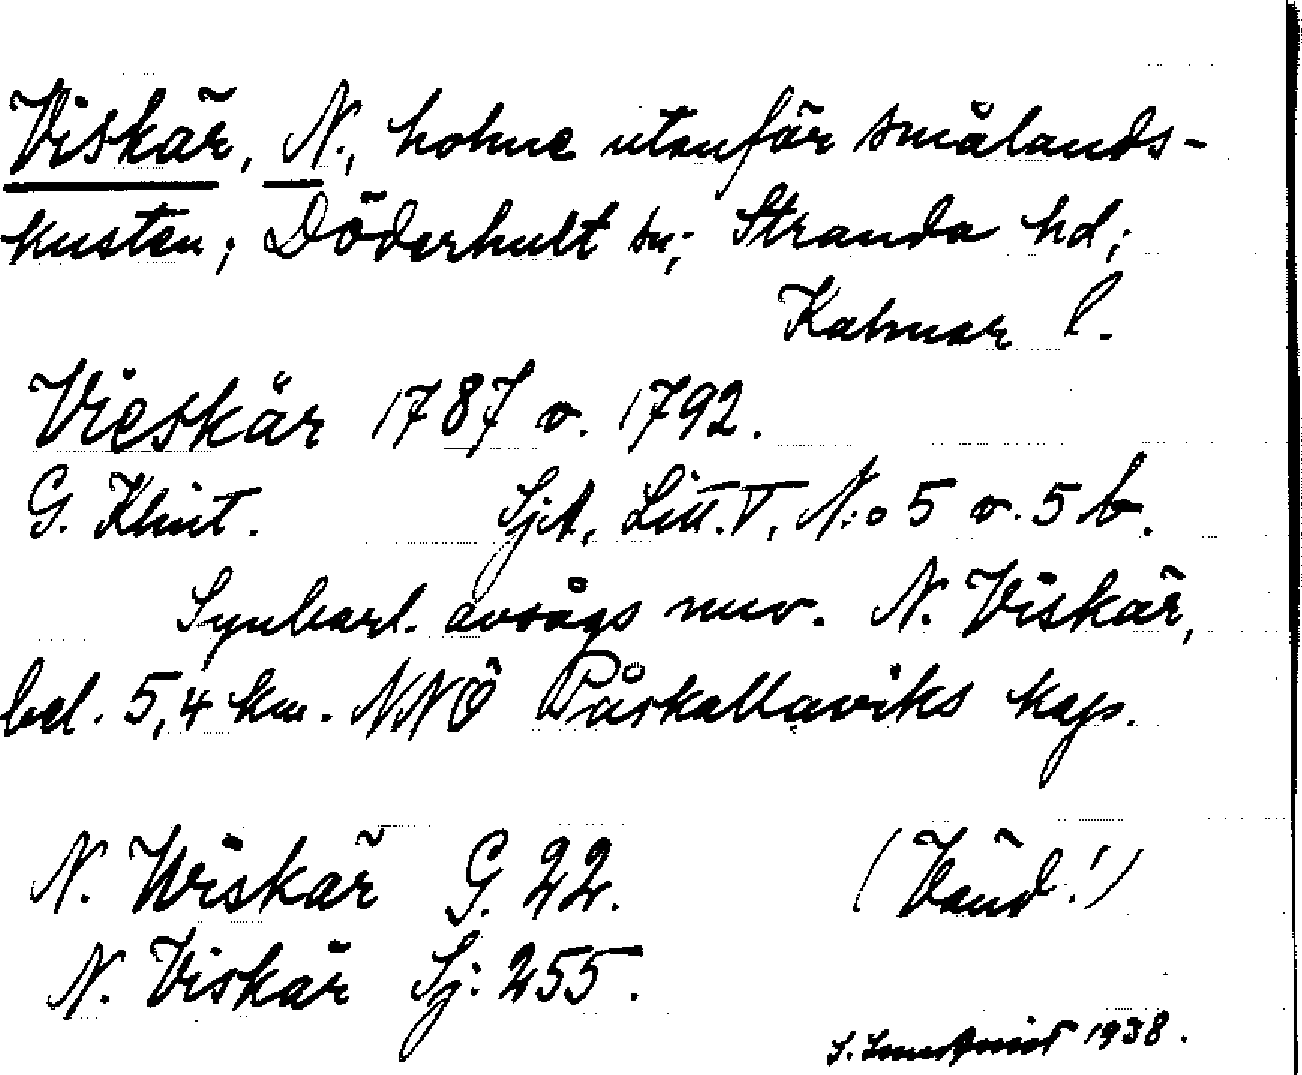 Viskär, N., holme utanför smålands-
kusten; Döderhult sn; Stranda hd;
Kalmar l.
Vieskär 1787 o. 1792.
G. Klint. Sjk, Litt. V, N:o 5 o. 5 b.
Synbarl. avsågs nuv. N. Viskär,
bel. 5,4 km. NNÖ Påskallaviks kap.
N. Wiskär G. 22. (Vänd!)
N. Viskär Sj: 255.
S. 1938.